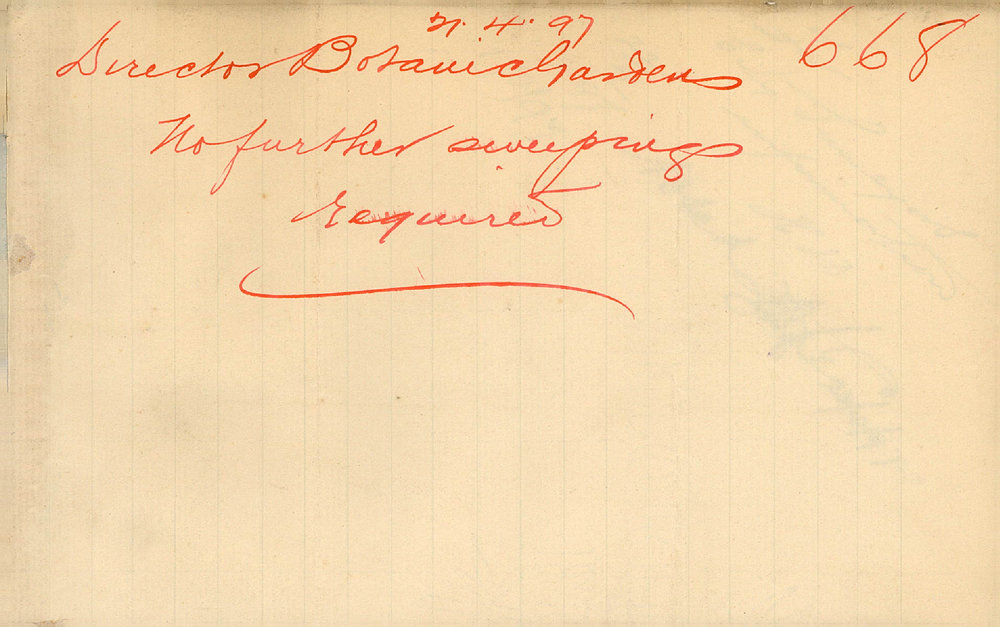 21.4.97
668
Director Botanic Gardens
No further sweepings
Required